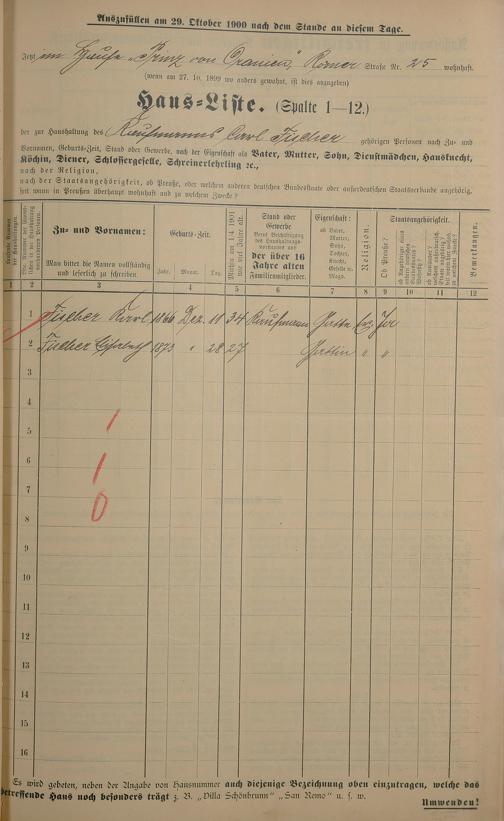 Auszufüllen am 29. Oktober 1900 nach dem Stande an diesem Tage.
Jetzt im Hause „Prinz von Oranien", Römer Straße Nr. 25 wohnhaft.
(wenn am 27. 10. 1899 wo anders gewohnt, ist dies anzugeben)
Haus=Liste. (Spalte 1—12.)
der zur Haushaltung des Kaufmanns Carl Fischer gehörigen Personen nach Zu- und
Vornamen, Geburts-Zeit, Stand oder Gewerbe, nach der Eigenschaft als Vater, Mutter, Sohn, Dienstmädchen, Hausknecht,
Köchin, Diener, Schlossergeselle, Schreinerlehrling 2c.,
nach der Religion,
nach der Staatsangehörigkeit, ob Preuße, oder welchem anderen deutschen Bundesstaate oder außerdeutschen Staatsverbande angehörig.
seit wann in Preußen überhaupt wohnhaft und zu welchem Zwecke?
Zu- und Vornamen:
Man bittet die Namen vollständig
und leserlich zu schreiben.
Geburts-Zeit.
Jahr. Monat. Tag.
Mithin am 1/4 1901
wie viel Jahre alt.
Stand oder
Gewerbe
der über 16
Jahre alten
Familienmitglieder.
Eigenschaft:
ob Vater,
Mutter,
Sohn,
Tochter,
Knecht,
Geselle
Magd.
Religion.
Staatsangehörigkeit.
Ob Preuße?
Bemerkungen.
1 2 3 4 5 6 7 8 9 10 11 12
1 Fischer Karl 1866 Dez. 11 34 Kaufmann Gatte Ev. Ja
2 Fischer Elisabeth 1873 " 28 27 Gattin " "
3
4
5
6
7
8
9
10
11
12
13
14
15
16
1
1
0
Es wird gebeten, neben der Angabe von Hausnummer auch diejenige Bezeichnung oben einzutragen, welche das
betreffende Haus noch besonders trägt z. B. „Villa Schönbrunn" „San Remo" u. s. w.
Umwenden!